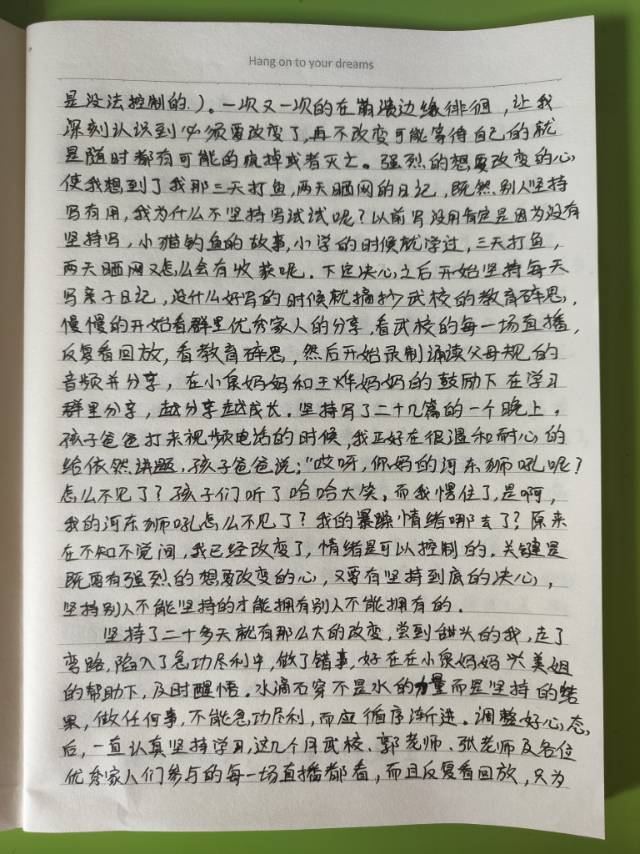 Hang on to your dreams
是没法控制的.）。一次又一次的在崩溃边缘徘徊，让我
深刻认识到必须要改变了，再不改变可能等待自己的就
是随时都有可能的疯掉或者灭亡。强烈的想要改变的心
使我想到了我那三天打鱼，两天晒网的日记，既然别人坚持
写有用，我为什么不坚持写试试呢？以前写没用肯定是因为没有
坚持写，小猫钓鱼的故事，小学的时候就学过，三天打鱼，
两天晒网又怎么会有收获呢。下定决心之后开始坚持每天
写亲子日记，没什么好写的时候就摘抄武校的教育碎思，
慢慢的开始看群里优秀家人的分享，看武校的每一场直播，
反复看回放，看教育碎思，然后开始录制诵读父母规的
音频并分享，在小泉妈妈和王烨妈妈的鼓励下在学习
群里分享，越分享越成长。坚持写了二十几篇的一个晚上，
孩子爸爸打来视频电话的时候，我正好在很温和耐心的
给依然讲题，孩子爸爸说："哎呀，你妈的河东狮吼呢？
怎么不见了？孩子们听了哈哈大笑，而我愣住了，是啊，
我的河东狮吼怎么不见了？我的暴躁情绪哪去了？原来
在不知不觉间，我已经改变了，情绪是可以控制的。关键是
既要有强烈的想要改变的心，又要有坚持到底的决心，
坚持别人不能坚持的才能拥有别人不能拥有的。
坚持了二十多天就有那么大的改变，尝到甜头的我，走了
弯路，陷入了急功尽利中，做了错事，好在在小泉妈妈 美姐
的帮助下，及时醒悟。水滴石穿不是水的力量而是坚持的结
果，做任何事，不能急功尽利，而应循序渐进。调整好心态
后，一直认真坚持学习，这几个月武校、郭老师、张老师及各位
优秀家人们参与的每一场直播都看，而且反复看回放，只为